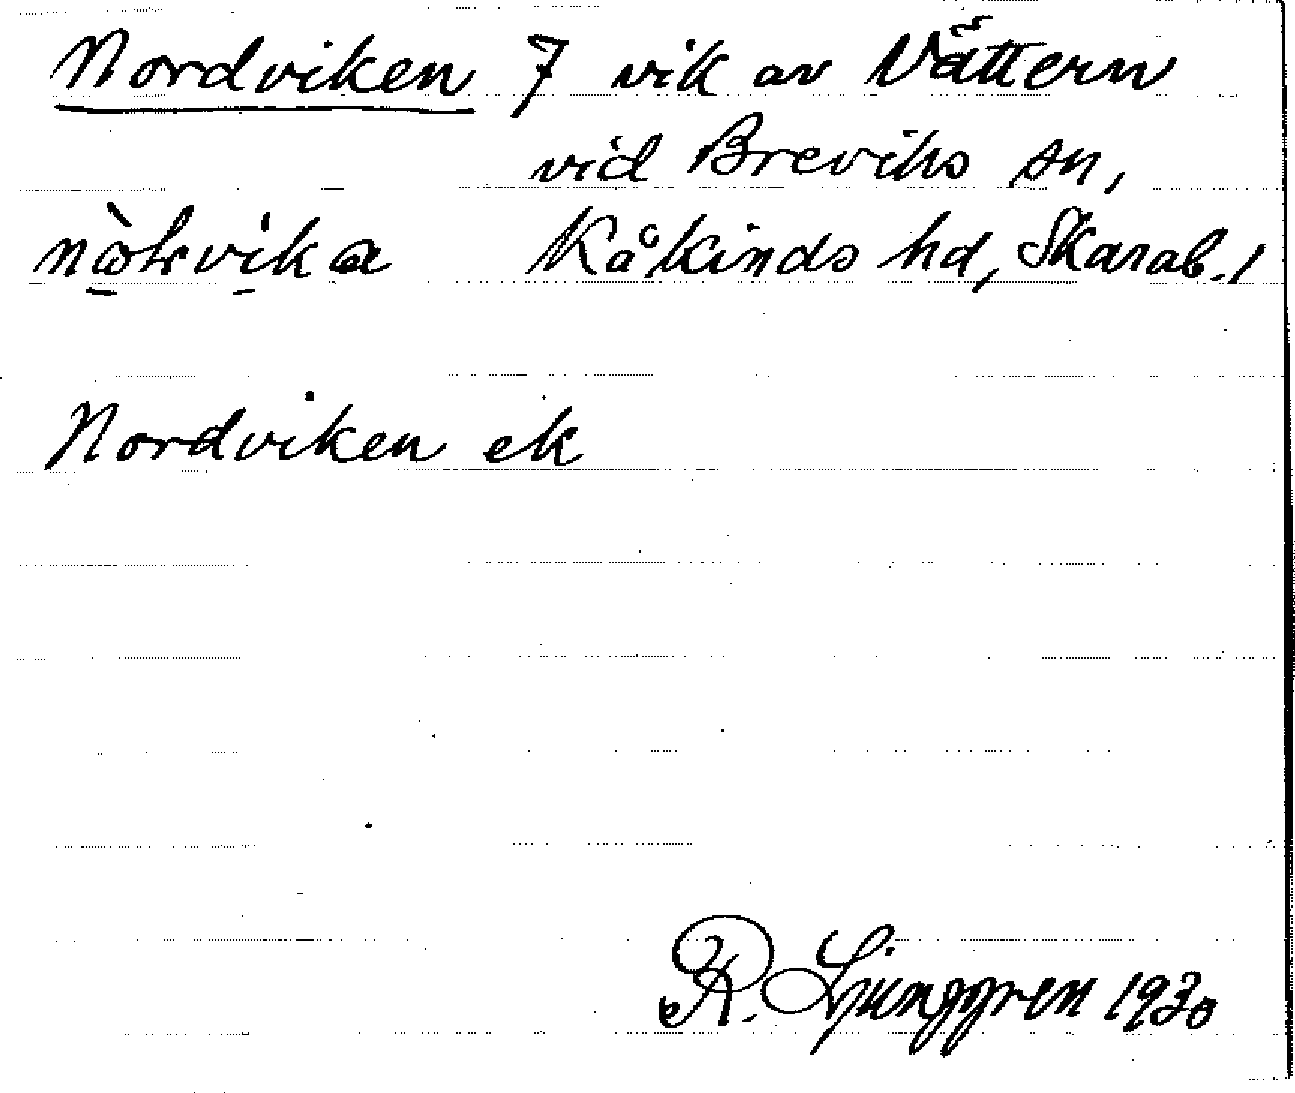 Nordviken 7 vik av Vättern
vid Breviks sn,
Kåkinds hd, Skarab. l
Nordviken ek
R. Ljunggren 1930